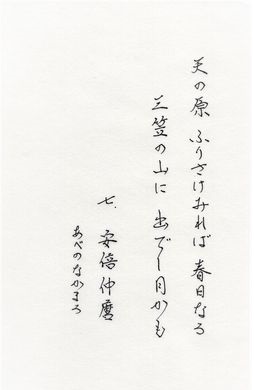 天の原 ふりさけみれば 春日なる
三笠の山に 出でし月かも
七. 安倍仲麿
あべのなかまろ